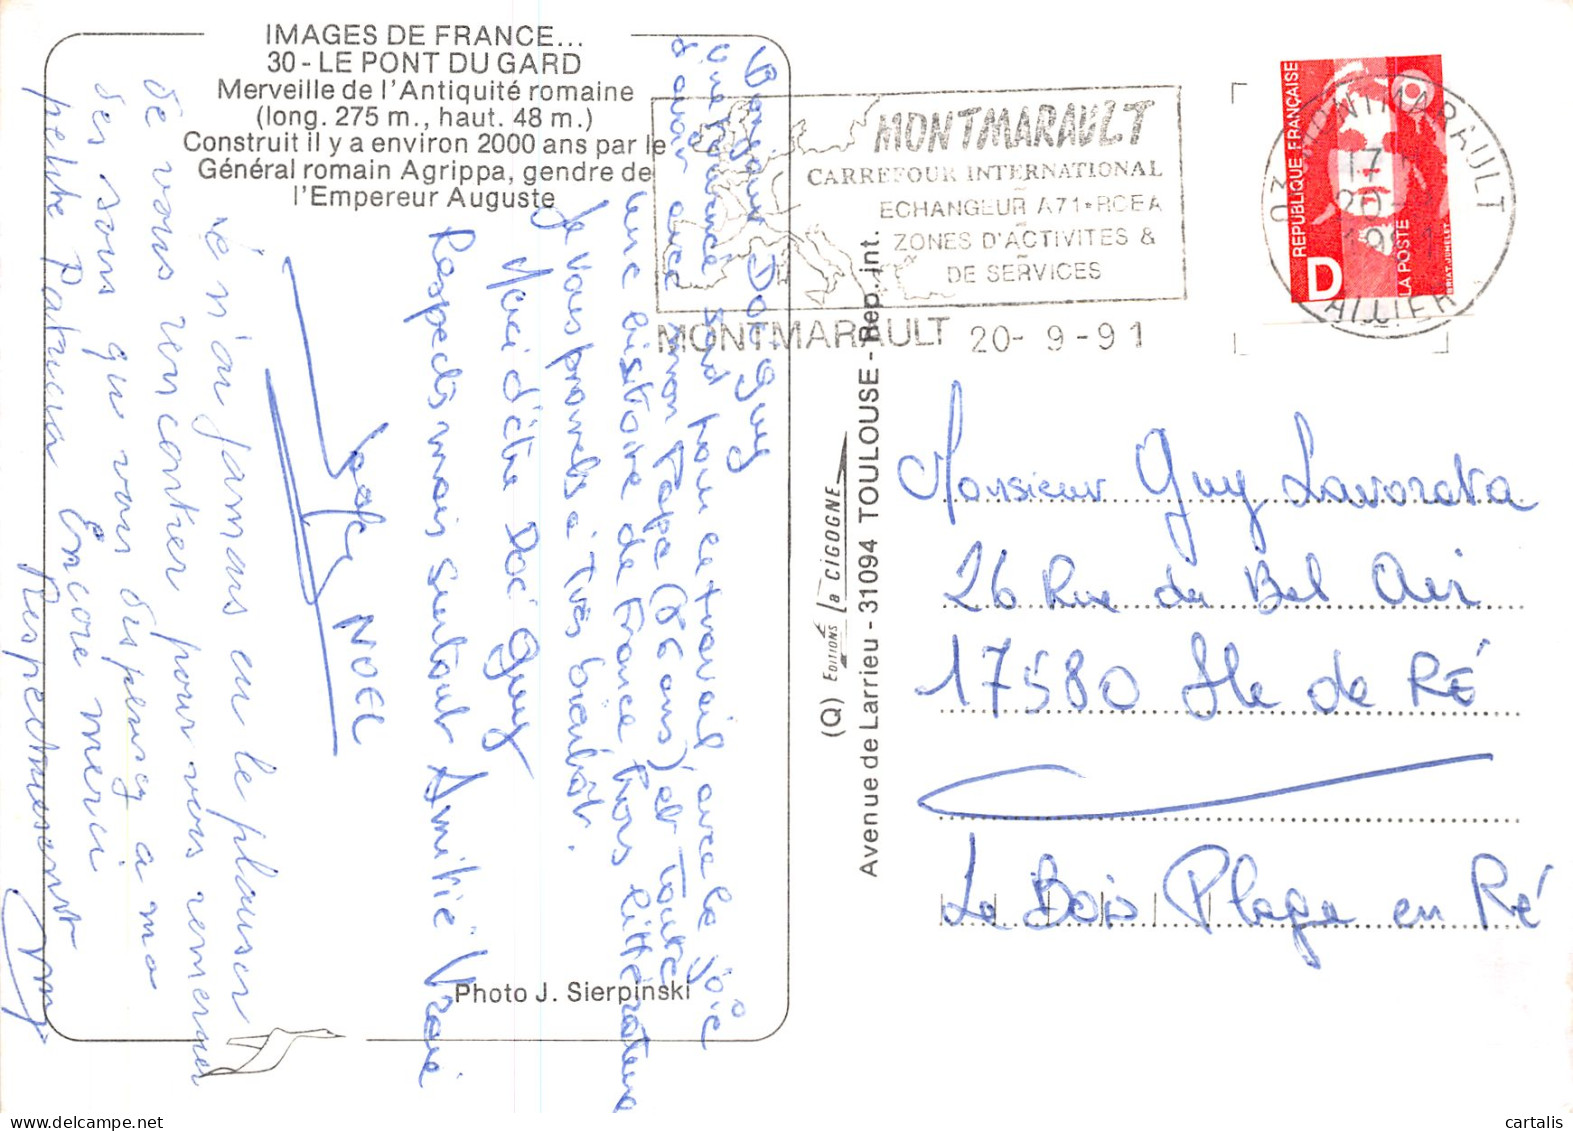 IMAGES DE FRANCE...
30 - LE PONT DU GARD
Merveille de l'Antiquité romaine
(long. 275 m., haut. 48 m.)
Construit il y a environ 2000 ans par le
Général romain Agrippa, gendre de
l'Empereur Auguste
Bonjour Doc' Guy
Une présence Sud pour ce travail avec la joie
d'avoir avec mon Papa (86 ans) et Toute
une histoire de France hors littérature
Je vous promets à Très bientôt.
Merci d'être Doc' Guy
Respects mais surtout Amitié Vraie
NOEL
Je n'ai jamais eu le plaisir
de vous rencontrer pour vous remercier
des soins que vous dispensez à ma
petite Patricia Encore merci
Respectueusement
Photo J. Sierpinski
(Q) EDITIONS la CIGOGNE
Avenue de Larrieu - 31094 TOULOUSE - Rep. int.
MONTMARAULT
CARREFOUR INTERNATIONAL
ECHANGEUR A71*RCEA
ZONES D'ACTIVITES &
DE SERVICES
MONTMARAULT 20- 9 -91
03 MONTMARAULT
17 H
20-
ALLIER
REPUBLIQUE FRANÇAISE
D
LA POSTE
BRIAT.JUMELET
Monsieur Guy Lavorata
26 Rue du Bel Air
17580 Ile de RÉ
Le Bois Plage en Ré
cartalis